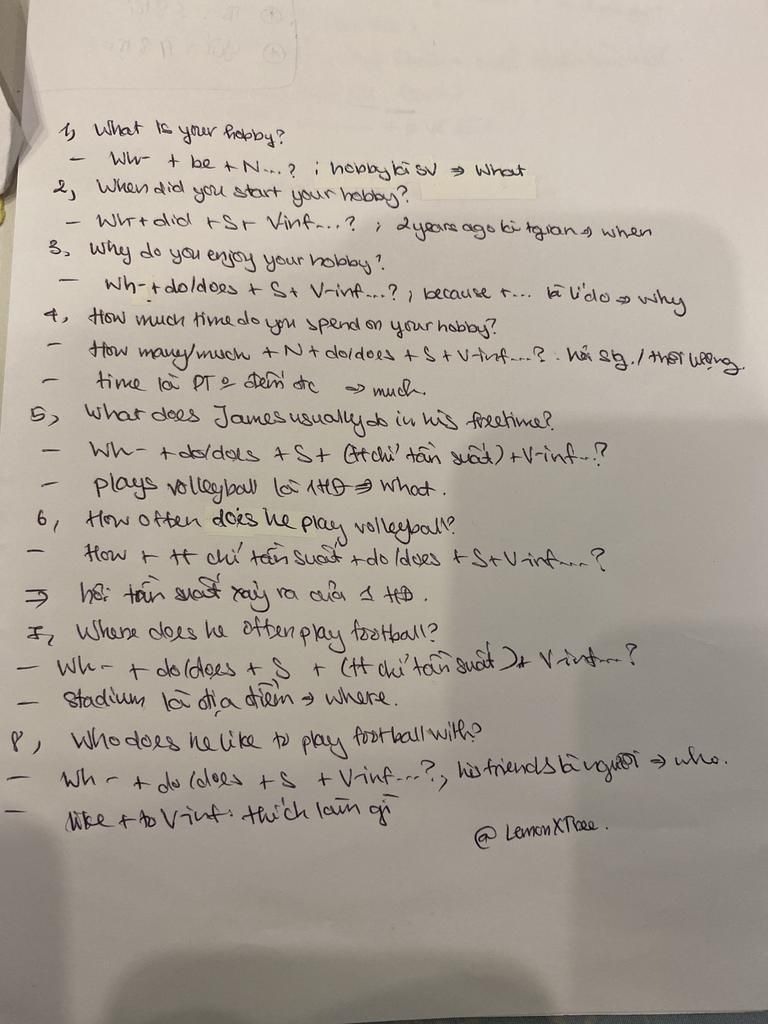 1, What is your hobby?
- Wh- + be + N...? ; hobby là SV ⇒ What
2, When did you start your hobby?
- Wh + did + S + Vinf...? ; 2 years ago là tgian ⇒ when
3, Why do you enjoy your hobby?
- Wh- + do/does + S + V-inf...? ; because +... là lí do ⇒ why
4, How much time do you spend on your hobby?
- How many/much + N + do/does + S + V-inf...? : hỏi sg. / thời lượng
- time là DT o đếm đc ⇒ much.
5, What does James usually do in his freetime?
- Wh- + do/does + S + (tt chỉ tần suất) + V-inf...?
- plays volleyball là 1 HĐ ⇒ what.
6, How often does he play volleyball?
- How + tt chỉ tần suất + do/does + S + V-inf...?
⇒ hỏi tần suất xảy ra của 1 HĐ.
7, Where does he often play football?
- Wh- + do/does + S + (tt chỉ tần suất) + V-inf...?
- Stadium là địa điểm ⇒ where.
8, Who does he like to play football with?
- Wh- + do/does + S + V-inf...?, his friends là người ⇒ who.
- like + to V-inf: thích làm gì
@ LemonXTbee.